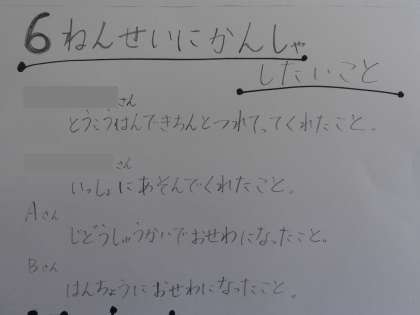 6ねんせいにかんしゃ
したいこと
さん
とうこうはんできちんとつれてってくれたこと。
さん
いっしょにあそんでくれたこと。
Aさん
じどうしゅうかいでおせわになったこと。
Bさん
はんちょうにおせわになったこと。